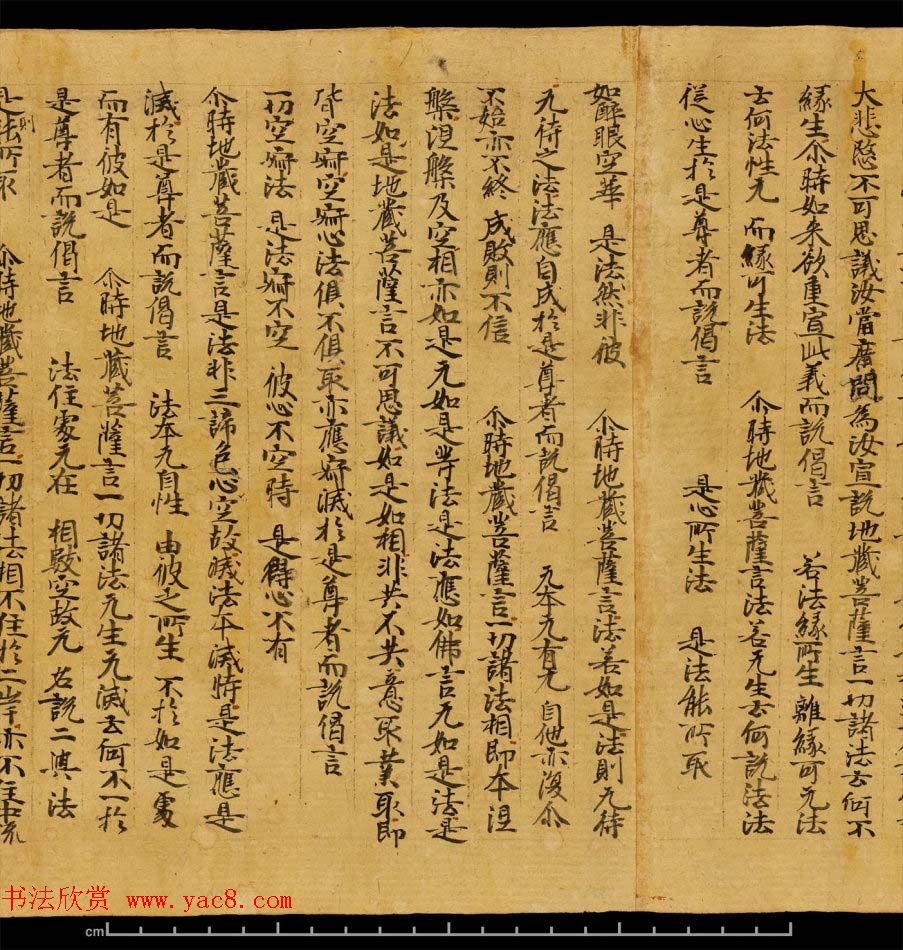 大悲愍不可思議汝當廣問為汝宣說地藏菩薩言一切諸法云何不
緣生尒時如来欲重宣此義而說偈言 若法緣所生 離緣可无法
云何法性无 而緣所生法 尒時地藏菩薩言法若无生云何說法法
從心生於是尊者而說偈言 是心所生法 是法能所取
如醉眼空華 是法然非彼 尒時地藏菩薩言法若如是法則无待
无待之法法應自成於是尊者而說偈言 无本无有无 自他亦復尒
不始亦不終 成敗則不信 尒時地藏菩薩言一切諸法相即本涅
槃涅槃及空相亦如是无如是等法是法應如佛言无如是法是
法如是地藏菩薩言不可思議如是如相非共不共意取業取即
皆空寂空寂心法俱不俱取亦應寂滅於是尊者而說偈言
一切空寂法 是法寂不空 彼心不空時 是得心不有
尒時地藏菩薩言是法非三諦色心空故滅法本滅時是法應是
滅於是尊者而說偈言 法本无自性 由彼之所生 不於如是處
而有彼如是 尒時地藏菩薩言一切諸法无生无滅云何不一於
是尊者而說偈言 法住處无在 相數空故无 名說二與法
是則法所取 尒時地藏菩薩言一切諸法相不住於二岸亦不住中流
书法欣赏 www.yac8.com
cm